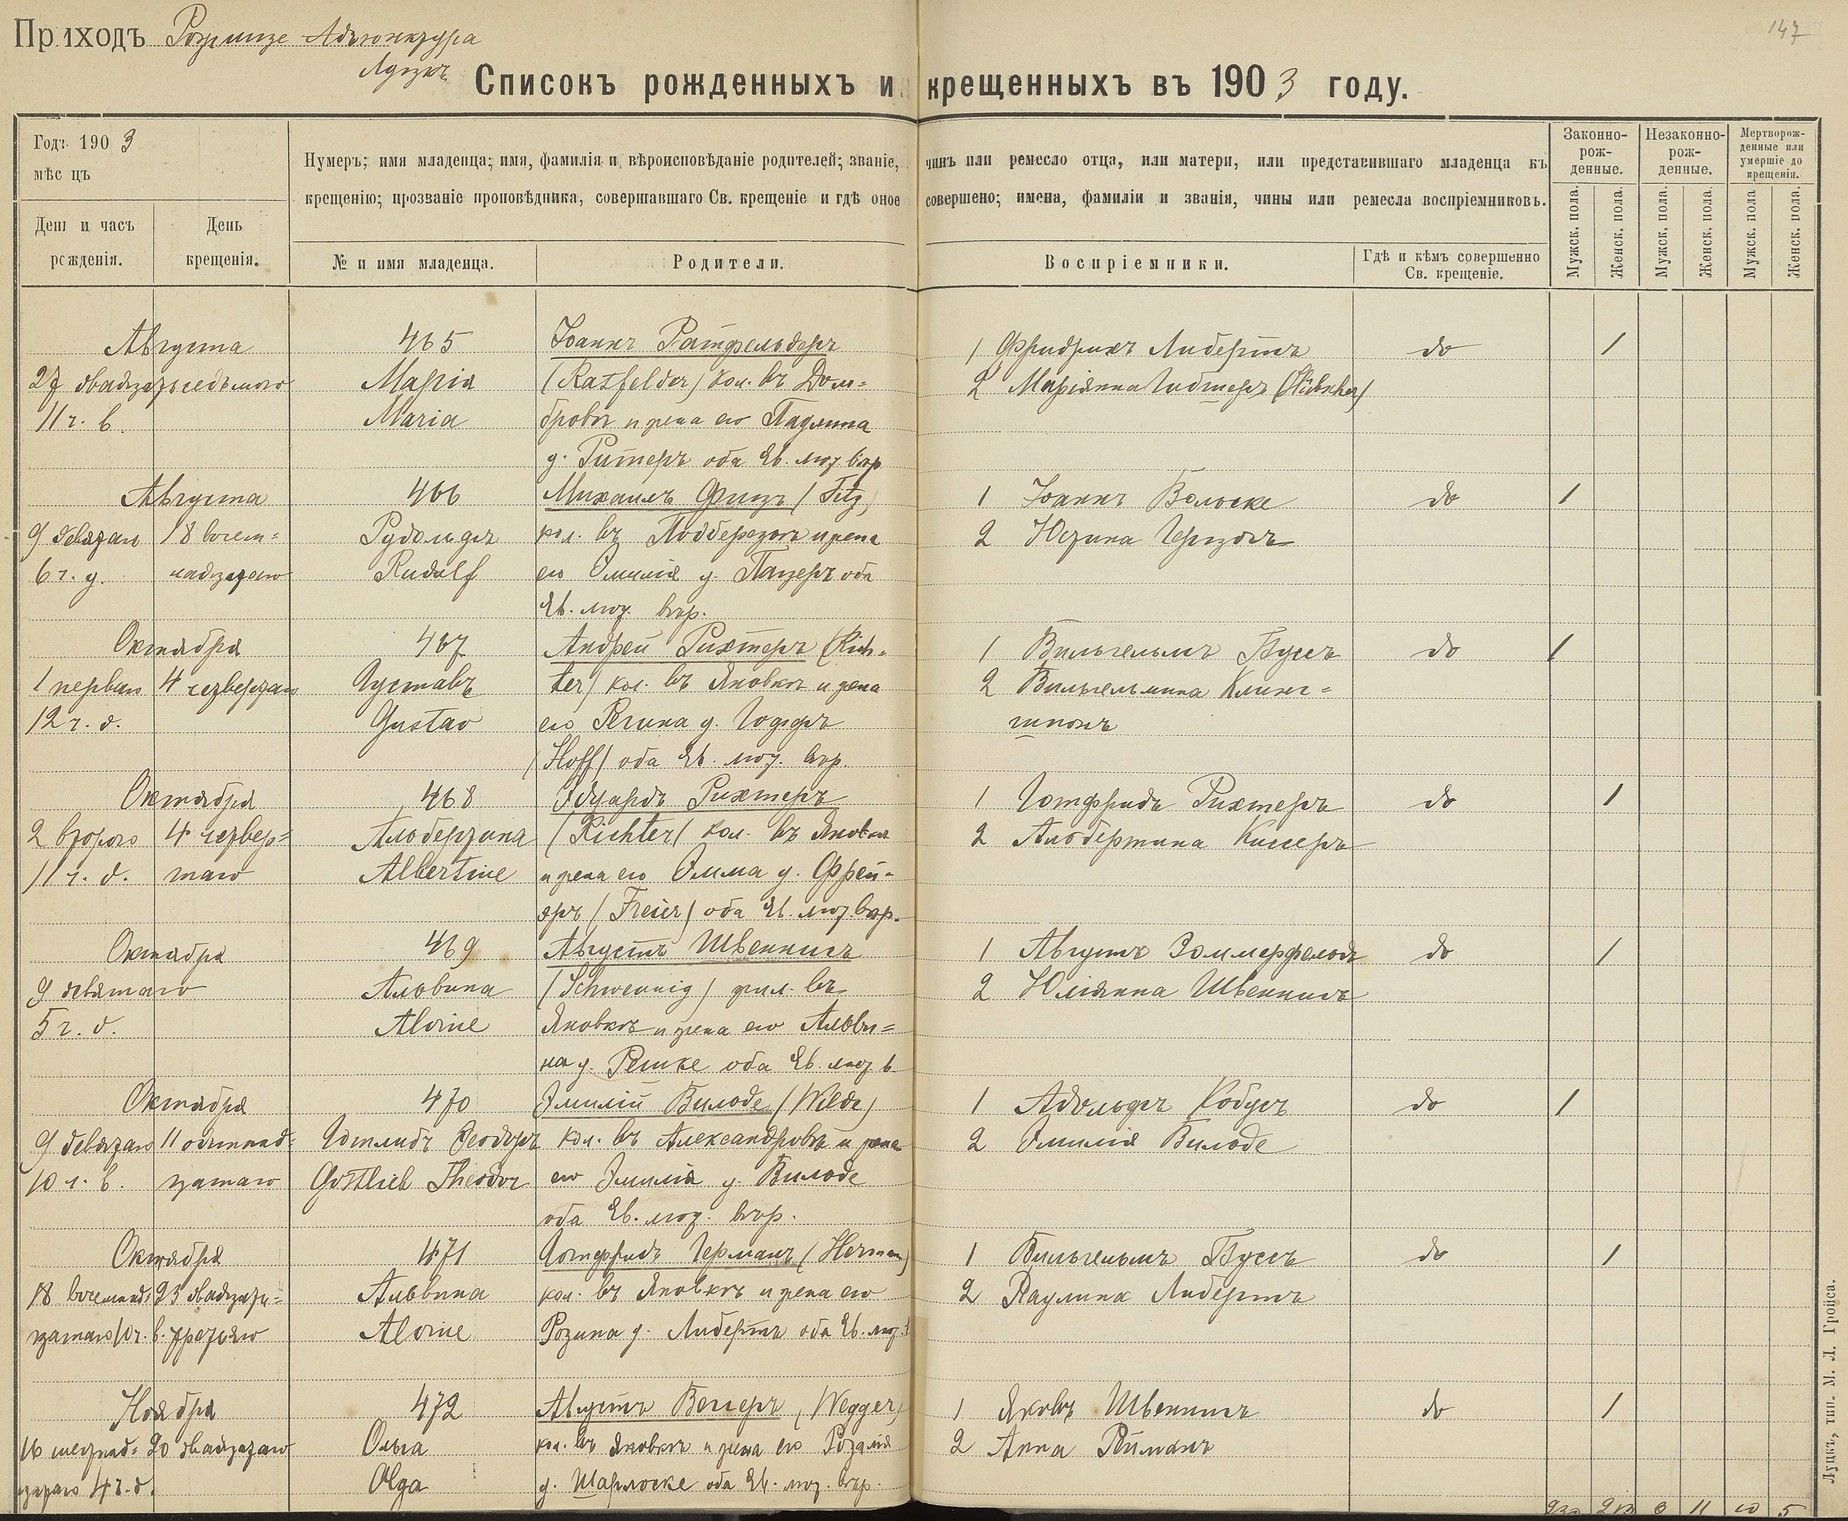 147
Приходъ Рожище Адъюнктура
Луцкъ
Списокъ рожденныхъ и крещенныхъ въ 1903 году.
Годъ 1903
мѣсяцъ
День и часъ рожденія.
День крещенія.
Нумеръ; имя младенца; имя, фамилія и вѣроисповѣданіе родителей; званіе, чинъ или ремесло отца, или матери, или представившаго младенца къ
крещенію; прозваніе проповѣдника, совершавшаго Св. крещеніе и гдѣ оное совершено; имена, фамиліи и званія, чины или ремесла воспріемниковъ.
№ и имя младенца.
Родители.
Воспріемники.
Гдѣ и кѣмъ совершенно Св. крещеніе.
Законно-рож-денные.
Незаконно-рож-денные.
Мертворож-денные или умершіе до крещенія.
Мужск. пола.
Женск. пола.
Мужск. пола.
Женск. пола.
Мужск. пола
Женск. пола.
Августа
27 двадцать седьмого
11 ч. в.
465
Марія
Maria
Іоаннъ Ратфельдеръ
(Ratfelder) кол. въ Дом=
бровѣ и жена его Паулина
у. Ритеръ оба Ев. лют. вѣр.
1 Фридрихъ Либертъ
2 Маріянна
до
1
Августа
9 девятаго
6 ч. у.
18 восем=
надцатаго
466
Рудольфъ
Rudolf
Михаилъ Фицъ (Fitz)
кол. въ Подберезьѣ и жена
его Эмилія у. Пацеръ оба
Ев. лют. вѣр.
1 Іоаннъ Вольске
2 Юстина Герцогъ
до
1
Октября
1 перваго
12 ч. д.
4 четвертаго
467
Густавъ
Gustav
Андрей Рихтеръ (Rich=
ter) кол. въ Яновкѣ и жена
его Регина у. Гоффъ
(Hoff) оба Ев. лют. вѣр.
1 Вильгельмъ Буссъ
2 Вильгельмина Клинг=
шпонъ
до
1
Октября
2 второго
11 ч. д.
4 четвер=
таго
468
Альбертина
Albertine
Эдуардъ Рихтеръ
(Richter) кол. въ Яновкѣ
и жена его Эмма у. Фрей=
еръ (Freier) оба Ев. лют. вѣр.
1 Готфридъ Рихтеръ
2 Альбертина Киссеръ
до
1
Октября
9 девятаго
5 ч. д.
469
Альвина
Alvine
Августъ Швеннигъ
(Schwennig) кол. въ
Яновкѣ и жена его Альви=
на у. Решке оба Ев. лют. в.
1 Августъ Зоммерфельдъ
2 Юліянна Швеннигъ
до
1
Октября
9 девятаго
10 ч. в.
11 одиннад=
цатаго
470
Готлибъ Теодоръ
Gottlieb Theodor
Эмилій Вильде (Wilde)
кол. въ Александровкѣ и жена
его Эмилія у. Вильде
оба Ев. лют. вѣр.
1 Адольфъ Кобусъ
2 Эмилія Вильде
до
1
Октября
18 восемнад=
цатаго 10 ч. в.
23 двадцать=
третьяго
471
Альвина
Alvine
Готфридъ Германъ (Herman)
кол. въ Яновкѣ и жена его
Розина у. Либертъ оба Ев. лют.
1 Вильгельмъ Буссъ
2 Паулина Либертъ
до
1
Ноября
16 шестнад=
цатаго 4 ч. д.
20 двадцатаго
472
Ольга
Olga
Августъ Веггеръ (Wegger)
кол. въ Яновкѣ и жена его Розалія
у. Шарлоске оба Ев. лют. вѣр.
1 Яковъ Швеннигъ
2 Анна Рейманъ
до
1
11 10 5
Луцкъ, тип. М. Л. Гройса.